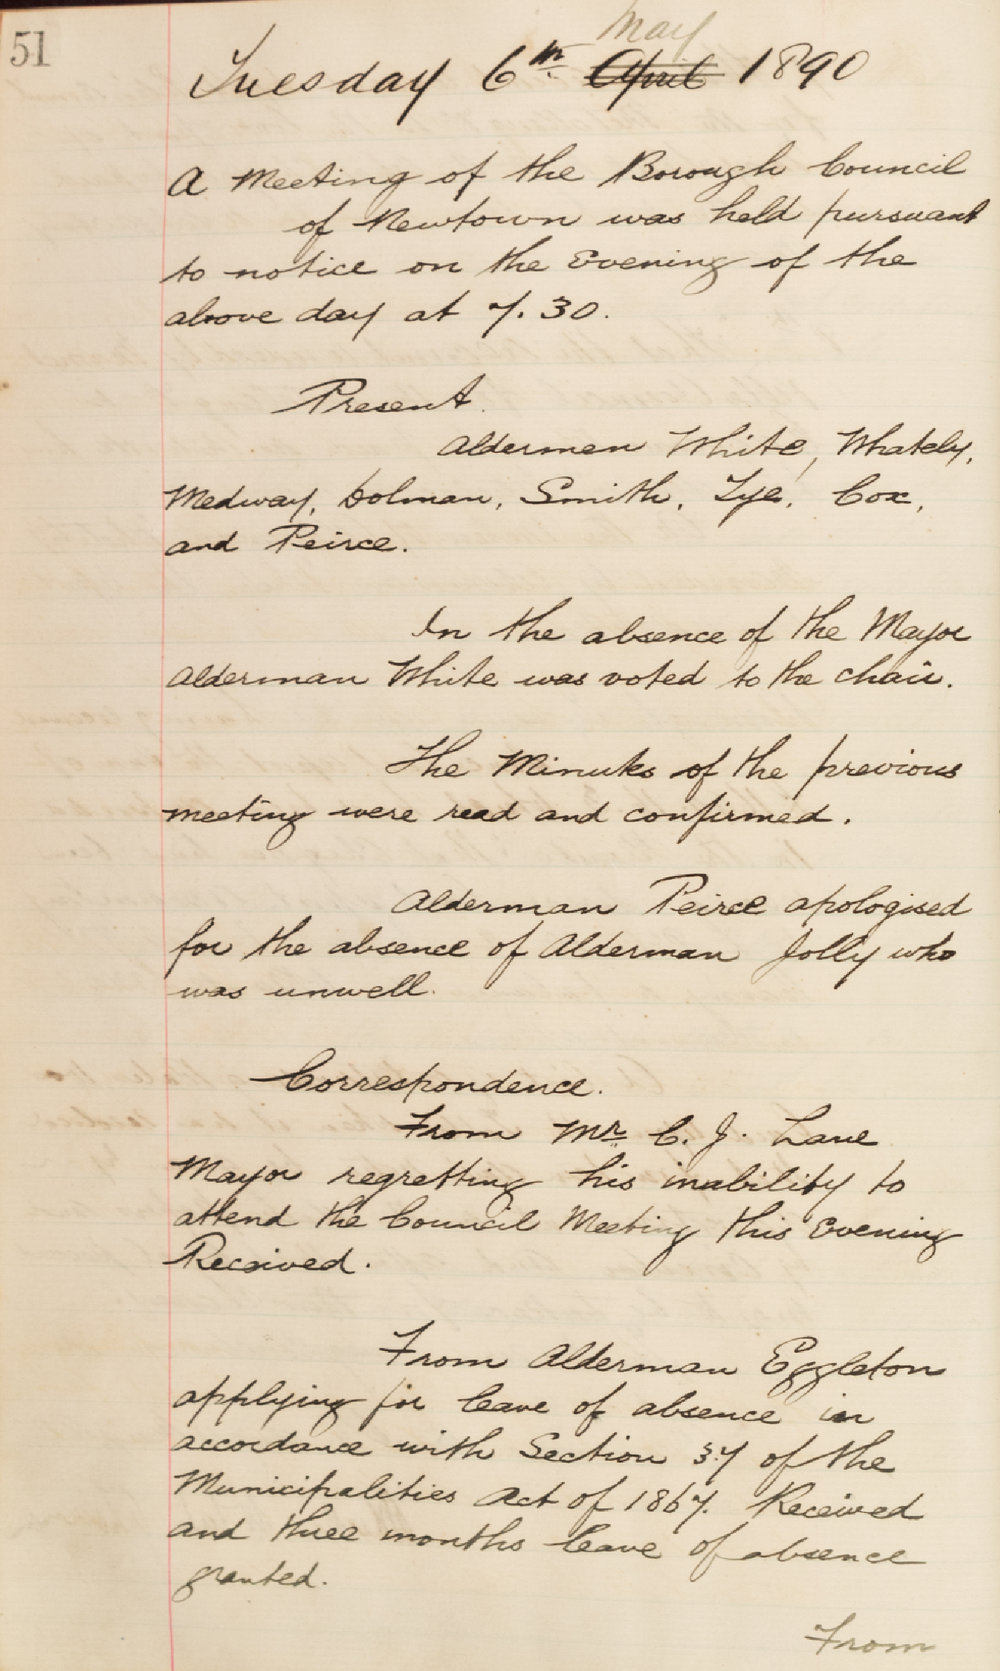 51
May
Tuesday 6th. April 1890
A Meeting of the Borough Council
of Newtown was held pursuant
to notice on the Evening of the
above day at 7.30.
Present.
Aldermen White, Whately,
Medway, Dolman, Smith, Tye, Cox,
and Peirce.
In the absence of the Mayor
Alderman White was voted to the chair.
The Minutes of the previous
meeting were read and confirmed.
Alderman Peirce apologised
for the absence of Alderman Jolly who
was unwell.
Correspondence.
From Mr. C. J. Lane
Mayor regretting his inability to
attend the Council Meeting this Evening
Received.
From Alderman Eggleton
applying for leave of absence in
accordance with Section 37 of the
Municipalities Act of 1867. Received
and three months leave of absence
granted.
From